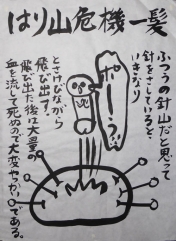 はり山危機一髪
ふつうの針山だと思って
針をさしていると、
いきなり
ぎゃーっ
とさけびながら
飛び出す!
飛び出た後は大量の
血を流して死ぬので大変やっかいである。